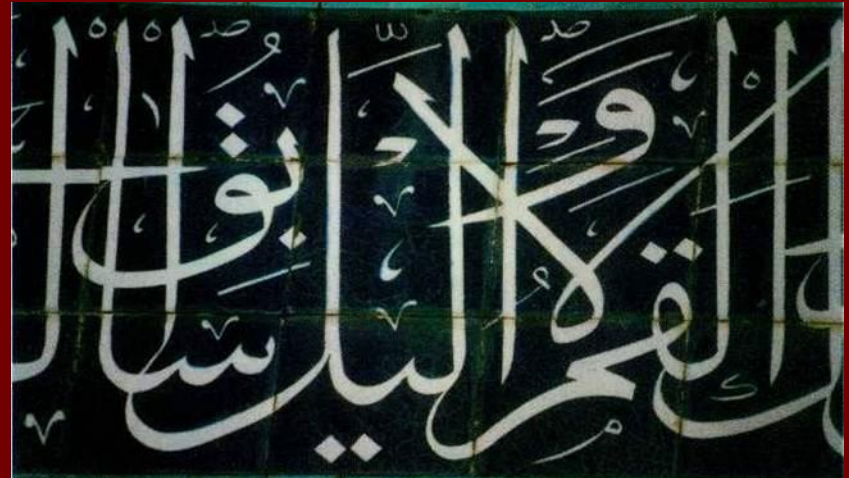 القمر ولا اليل سابق